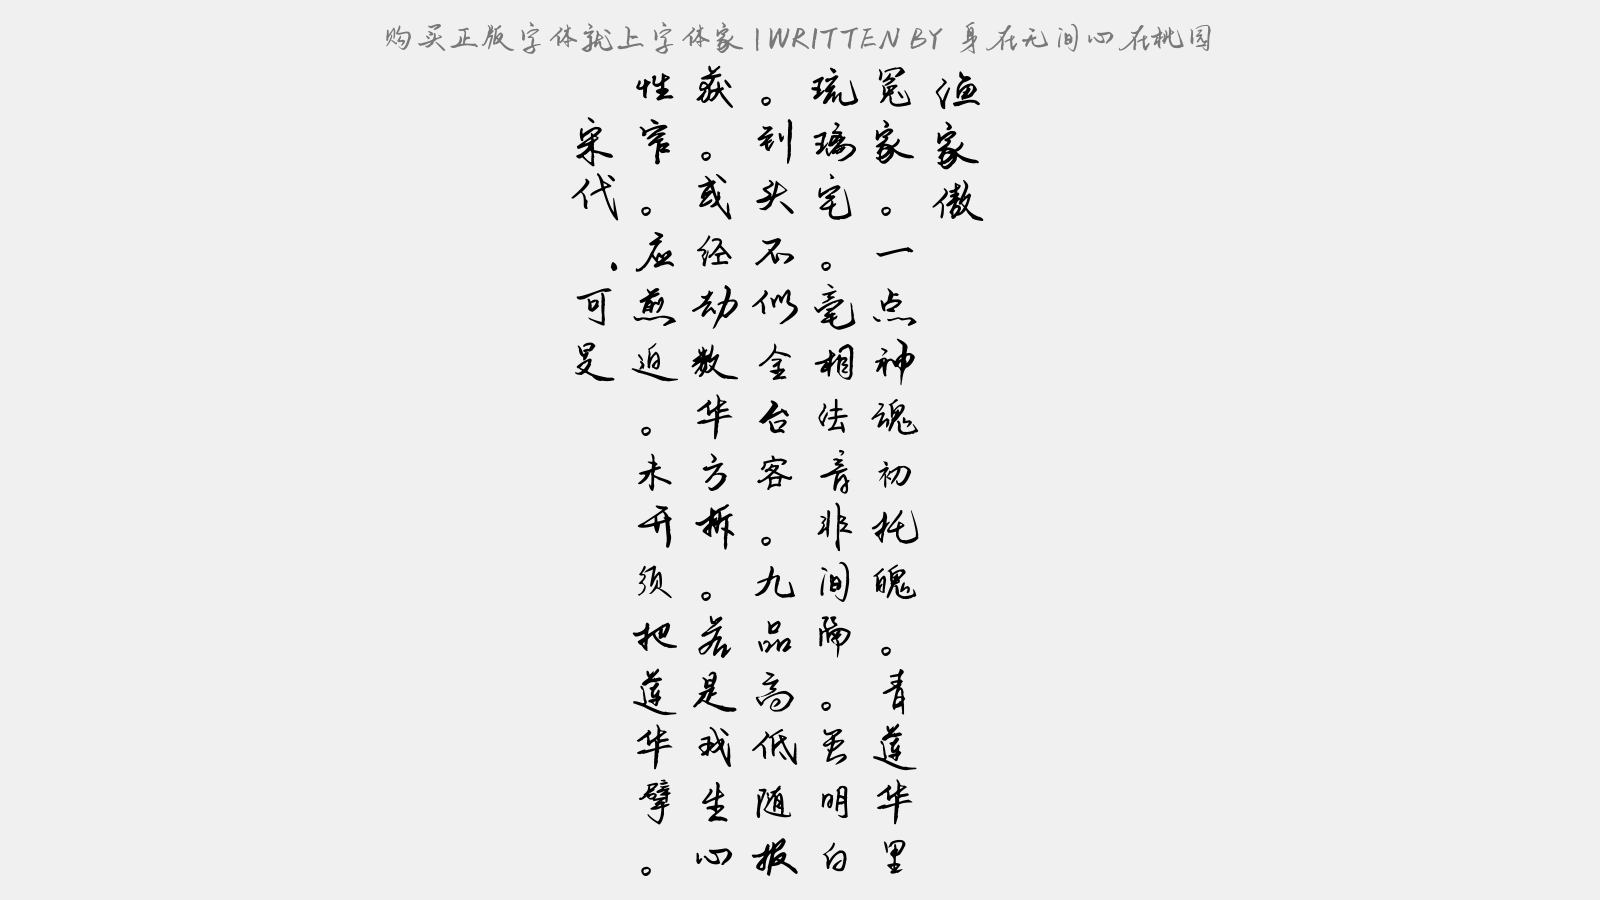 购买正版字体就上字体家 | WRITTEN BY 身在无间心在桃园
渔家傲
冤家。一点神魂初托魄。青莲华里
琉璃宅。毫相法音非间隔。虽明白
。到头不似金台客。九品高低随报
获。或经劫数华方拆。若是我生心
性窄。应煎迫。未开须把莲华擘。
宋代.可旻